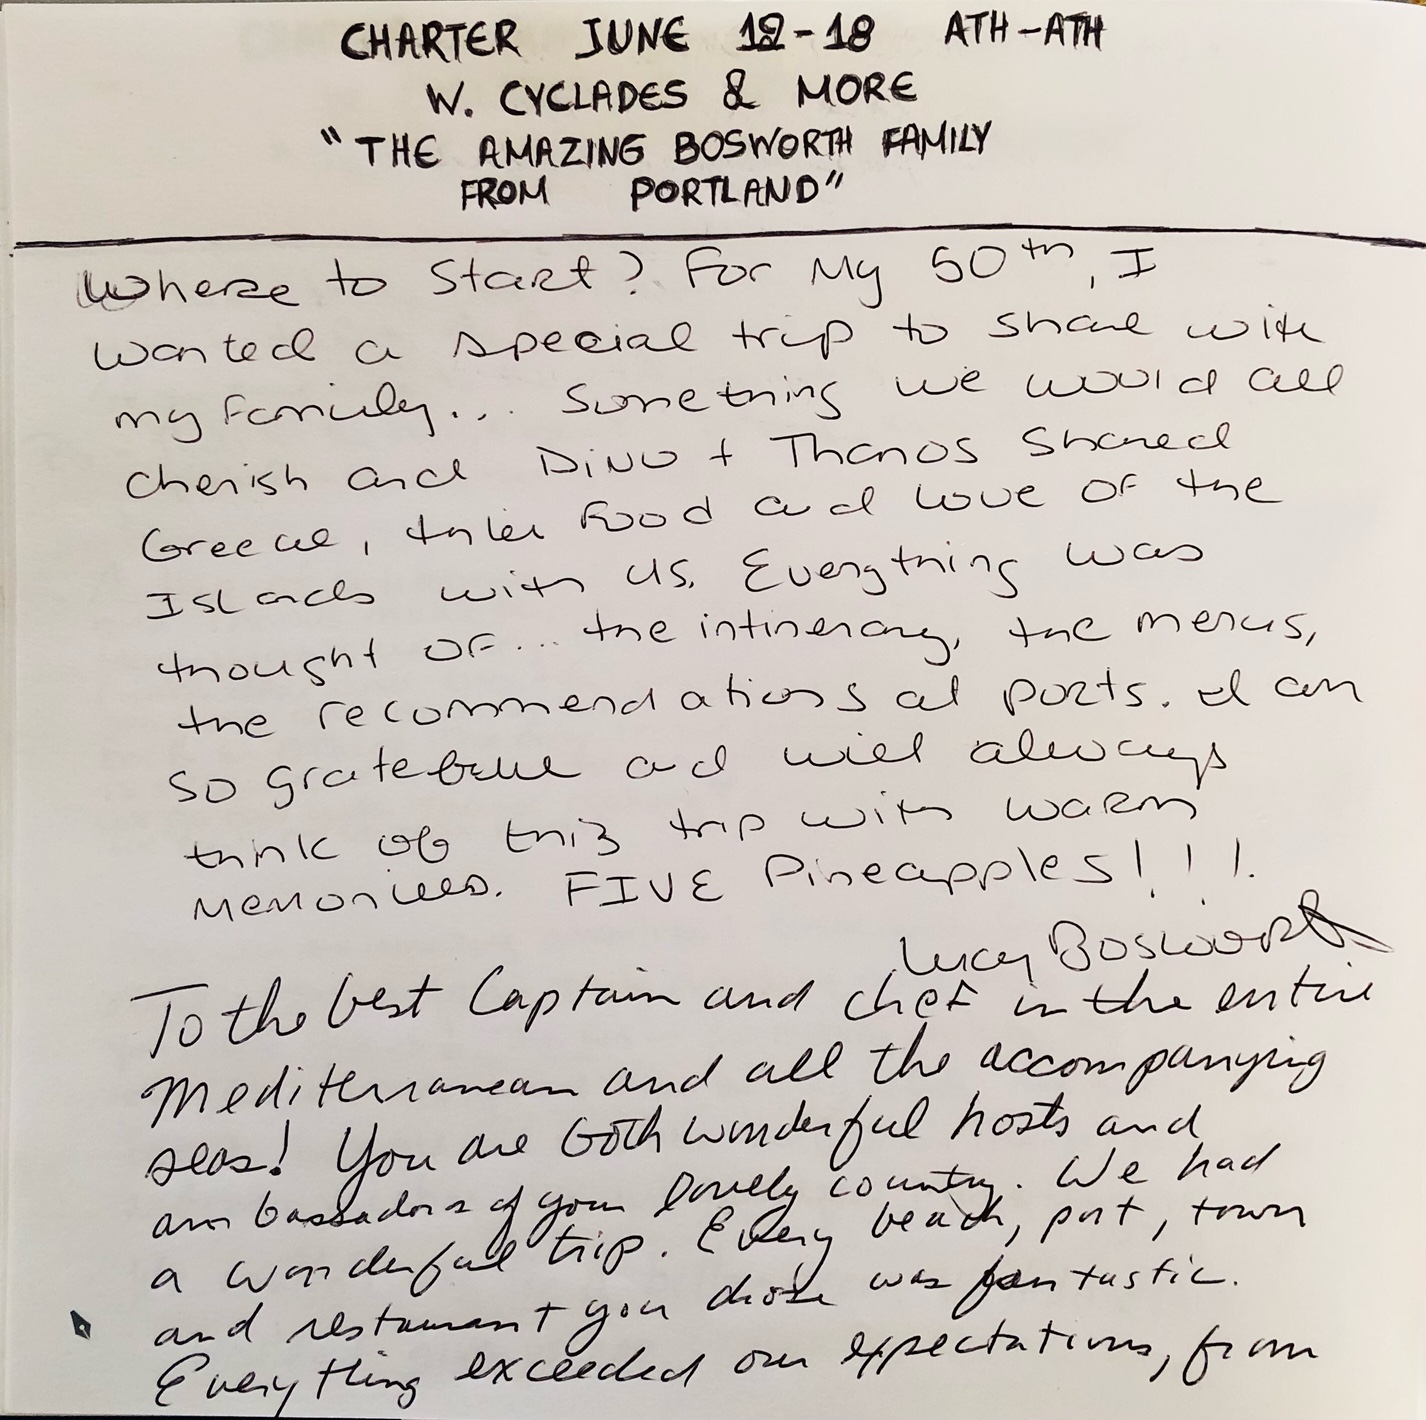 CHARTER JUNE 12-18 ATH-ATH
W. CYCLADES & MORE
"THE AMAZING BOSWORTH FAMILY
FROM PORTLAND"
Where to Start? For My 50th, I
wanted a special trip to share with
my family... Something we would all
cherish and Dino + Thanos Shared
Greece, their Food and love OF the
Islands with us. Everything was
thought OF... the intinerary, the menus,
the recommendations at ports. I am
so grateful and will always
think of this trip with warm
Memories. FIVE Pineapples!!!
Lucy Bosworth
To the best Captain and chef in the entire
Mediterranean and all the accompanying
seas! You are both wonderful hosts and
ambassadors of your lovely country. We had
a wonderful trip. Every beach, port, town
and restaurant you chose was fantastic.
Everything exceeded our expectations, from